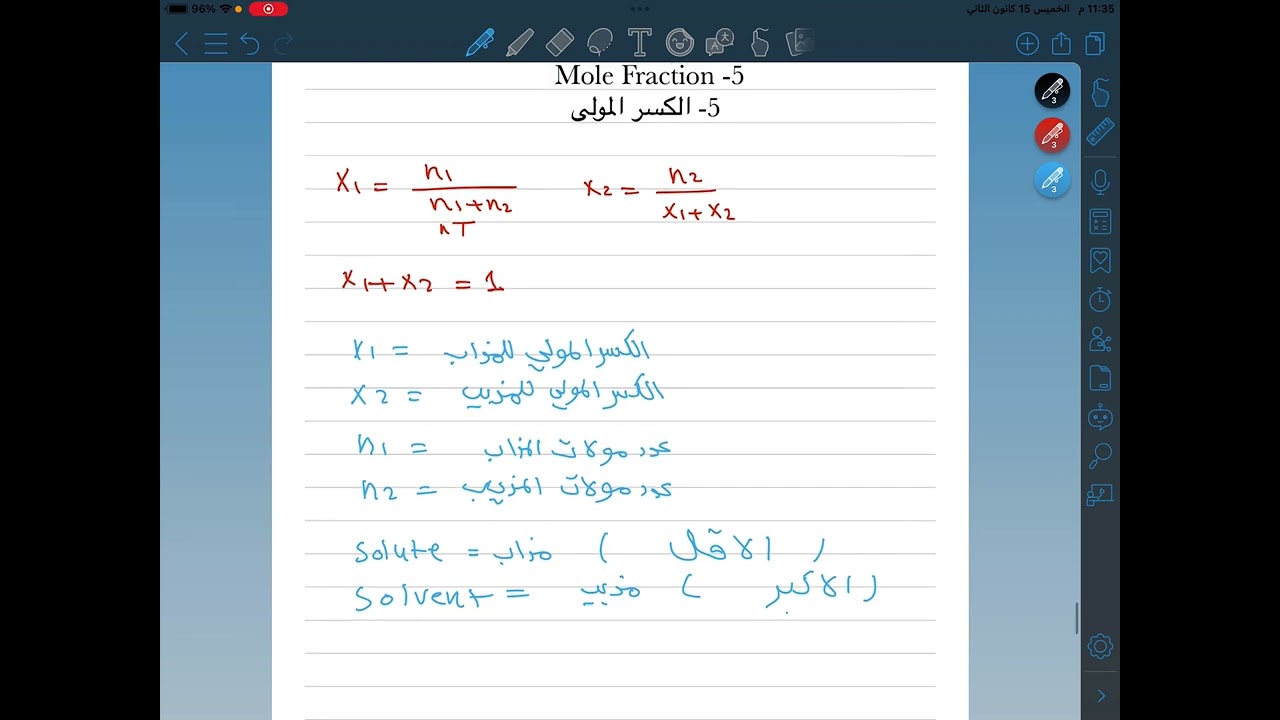 96%
11:35 م الخميس 15 كانون الثاني
Mole Fraction -5
5- الكسر المولي
x1 = n1 / n1+n2
nT
x2 = n2 / x1+x2
x1+x2 = 1
x1 = الكسر المولي للمزاب
x2 = الكسر المولي للمزيب
n1 = عدد مولات المزاب
n2 = عدد مولات المزيب
solute = مزاب ( الاقل )
solvent = مزيب ( الاكبر )
3
3
3